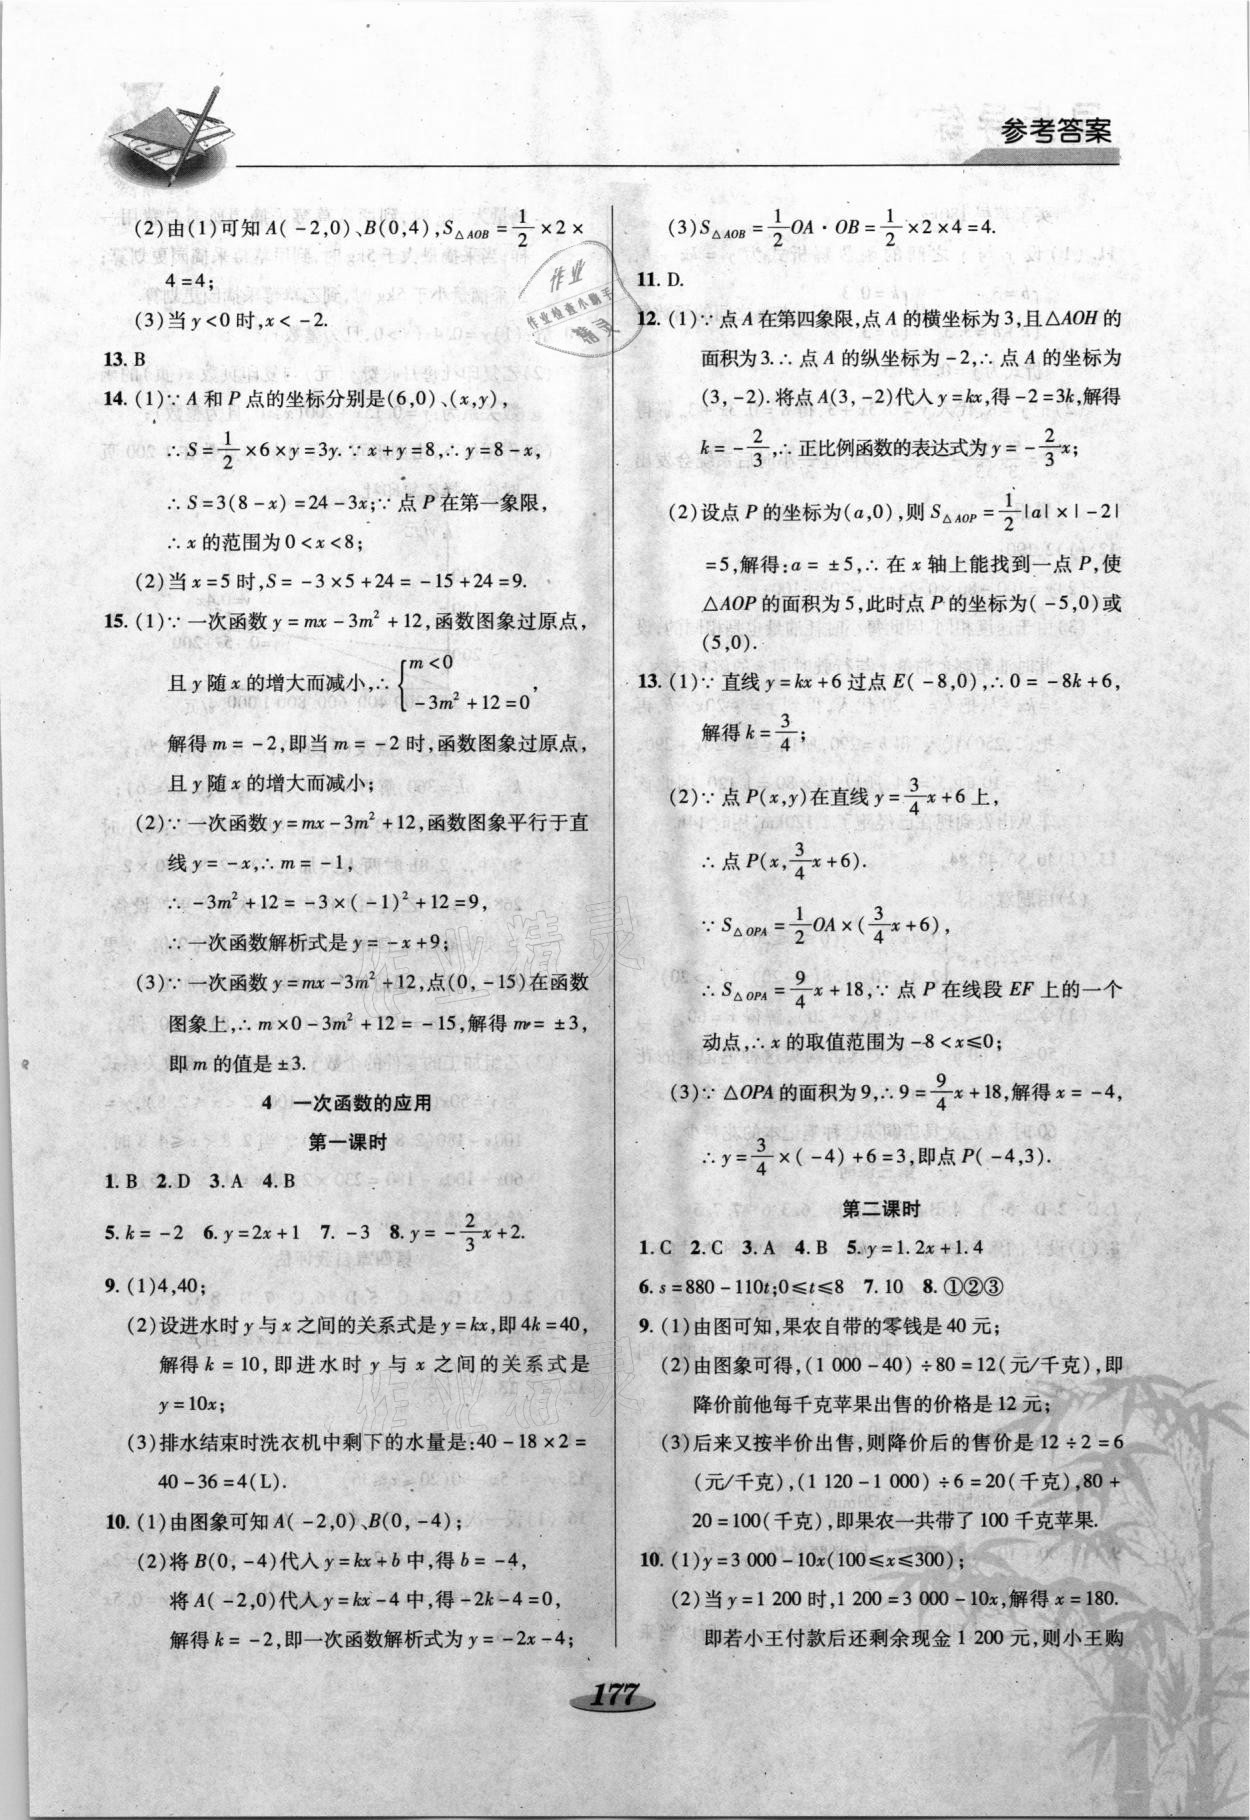 参考答案
(2)由(1)可知 A(-2,0)、B(0,4),S△AOB=1/2×2×
4=4;
(3)当 y<0 时,x<-2.
13. B
14. (1)∵ A 和 P 点的坐标分别是(6,0)、(x,y),
∴ S=1/2×6×y=3y.∵ x+y=8,∴ y=8-x,
∴ S=3(8-x)=24-3x;∵ 点 P 在第一象限,
∴ x 的范围为 0<x<8;
(2)当 x=5 时,S=-3×5+24=-15+24=9.
15. (1)∵ 一次函数 y=mx-3m²+12,函数图象过原点,
且 y 随 x 的增大而减小,∴ {m<0
-3m²+12=0,
解得 m=-2,即当 m=-2 时,函数图象过原点,
且 y 随 x 的增大而减小;
(2)∵ 一次函数 y=mx-3m²+12,函数图象平行于直
线 y=-x,∴ m=-1,
∴ -3m²+12=-3×(-1)²+12=9,
∴ 一次函数解析式是 y=-x+9;
(3)∵ 一次函数 y=mx-3m²+12,点(0,-15)在函数
图象上,∴ m×0-3m²+12=-15,解得 m=±3,
即 m 的值是 ±3.
4 一次函数的应用
第一课时
1. B 2. D 3. A 4. B
5. k=-2 6. y=2x+1 7. -3 8. y=-2/3x+2.
9. (1)4,40;
(2)设进水时 y 与 x 之间的关系式是 y=kx,即 4k=40,
解得 k=10,即进水时 y 与 x 之间的关系式是
y=10x;
(3)排水结束时洗衣机中剩下的水量是:40-18×2=
40-36=4(L).
10. (1)由图象可知 A(-2,0)、B(0,-4);
(2)将 B(0,-4)代入 y=kx+b 中,得 b=-4,
将 A(-2,0)代入 y=kx-4 中,得-2k-4=0,
解得 k=-2,即一次函数解析式为 y=-2x-4;
(3)S△AOB=1/2OA·OB=1/2×2×4=4.
11. D.
12. (1)∵ 点 A 在第四象限,点 A 的横坐标为 3,且△AOH 的
面积为 3.∴ 点 A 的纵坐标为-2,∴ 点 A 的坐标为
(3,-2).将点 A(3,-2)代入 y=kx,得-2=3k,解得
k=-2/3,∴ 正比例函数的表达式为 y=-2/3x;
(2)设点 P 的坐标为(a,0),则 S△AOP=1/2|a|×|-2|
=5,解得:a=±5,∴ 在 x 轴上能找到一点 P,使
△AOP 的面积为 5,此时点 P 的坐标为(-5,0)或
(5,0).
13. (1)∵ 直线 y=kx+6 过点 E(-8,0),∴ 0=-8k+6,
解得 k=3/4;
(2)∵ 点 P(x,y)在直线 y=3/4x+6 上,
∴ 点 P(x,3/4x+6).
∵ S△OPA=1/2OA×(3/4x+6),
∴ S△OPA=9/4x+18,∵ 点 P 在线段 EF 上的一个
动点,∴ x 的取值范围为-8<x≤0;
(3)∵ △OPA 的面积为 9,∴ 9=9/4x+18,解得 x=-4,
∴ y=3/4×(-4)+6=3,即点 P(-4,3).
第二课时
1. C 2. C 3. A 4. B 5. y=1.2x+1.4
6. s=880-110t;0≤t≤8 7. 10 8. ①②③
9. (1)由图可知,果农自带的零钱是 40 元;
(2)由图象可得,(1 000-40)÷80=12(元/千克),即
降价前他每千克苹果出售的价格是 12 元;
(3)后来又按半价出售,则降价后的售价是 12÷2=6
(元/千克),(1 120-1 000)÷6=20(千克),80+
20=100(千克),即果农一共带了 100 千克苹果.
10. (1)y=3 000-10x(100≤x≤300);
(2)当 y=1 200 时,1 200=3 000-10x,解得 x=180.
即若小王付款后还剩余现金 1 200 元,则小王购
177
作业
作业检查小助手
精灵
作业精灵
作业精灵